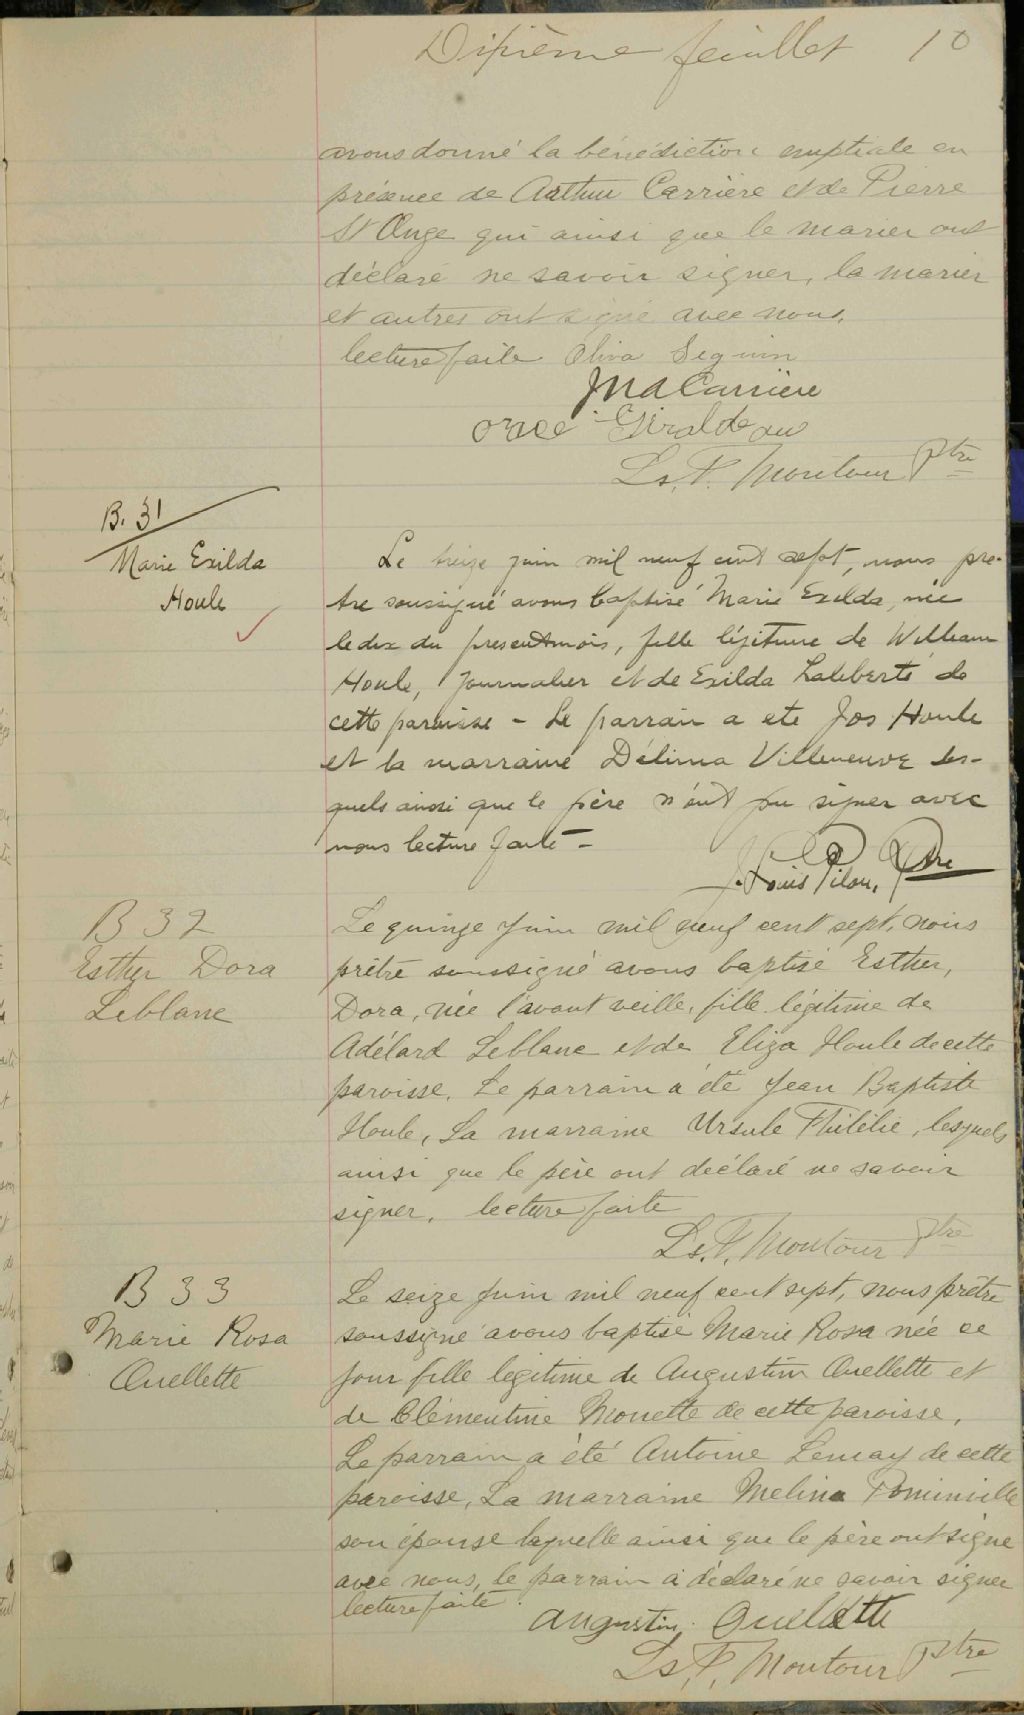 Dixième feuillet 10
avons donné la bénédiction nuptiale en
présence de Arthur Carrière et de Pierre
St Onge qui ainsi que le marier ont
déclaré ne savoir signer, la marier
et autres ont signé avec nous.
lecture faite. Oliva Seguin
J M A Carrière
Giraldeau
Ls. P. Montour Ptre
B. 31
Marie Exilda
Houle
Le treize juin mil neuf cent sept, nous pre-
tre soussigné avons baptisé Marie Exilda, née
le dix du present mois, fille légitime de William
Houle, journalier et de Exilda Laliberté de
cette paroisse - Le parrain a ete Jos Houle
et la marraine Délima Villeneuve les-
quels ainsi que le père n'ont pu signer avec
nous lecture faite -
J. Louis Pilon, Ptre
B 32
Esther Dora
Leblanc
Le quinze Juin mil neuf cent sept, nous
prêtre soussigné avons baptisé Esther,
Dora, née l'avant veille, fille légitime de
Adélard Leblanc et de Eliza Houle de cette
paroisse. Le parrain a été Jean Baptiste
Houle, La marraine Ursule lesquels
ainsi que le père ont déclaré ne savoir
signer. lecture faite
Ls. P. Montour Ptre
B 33
Marie Rosa
Ouellette
Le seize Juin mil neuf cent sept, nous prêtre
soussigné avons baptisé Marie Rosa née ce
jour fille legitime de Augustin Ouellette et
de Clémentine Monette de cette paroisse,
Le parrain a été Antoine Lemay de cette
paroisse, La marraine Melina Pominville
son épouse laquelle ainsi que le père ont signé
avec nous, le parrain a déclaré ne savoir signer
lecture faite.
Augustin Ouellette
Ls. P. Montour Ptre